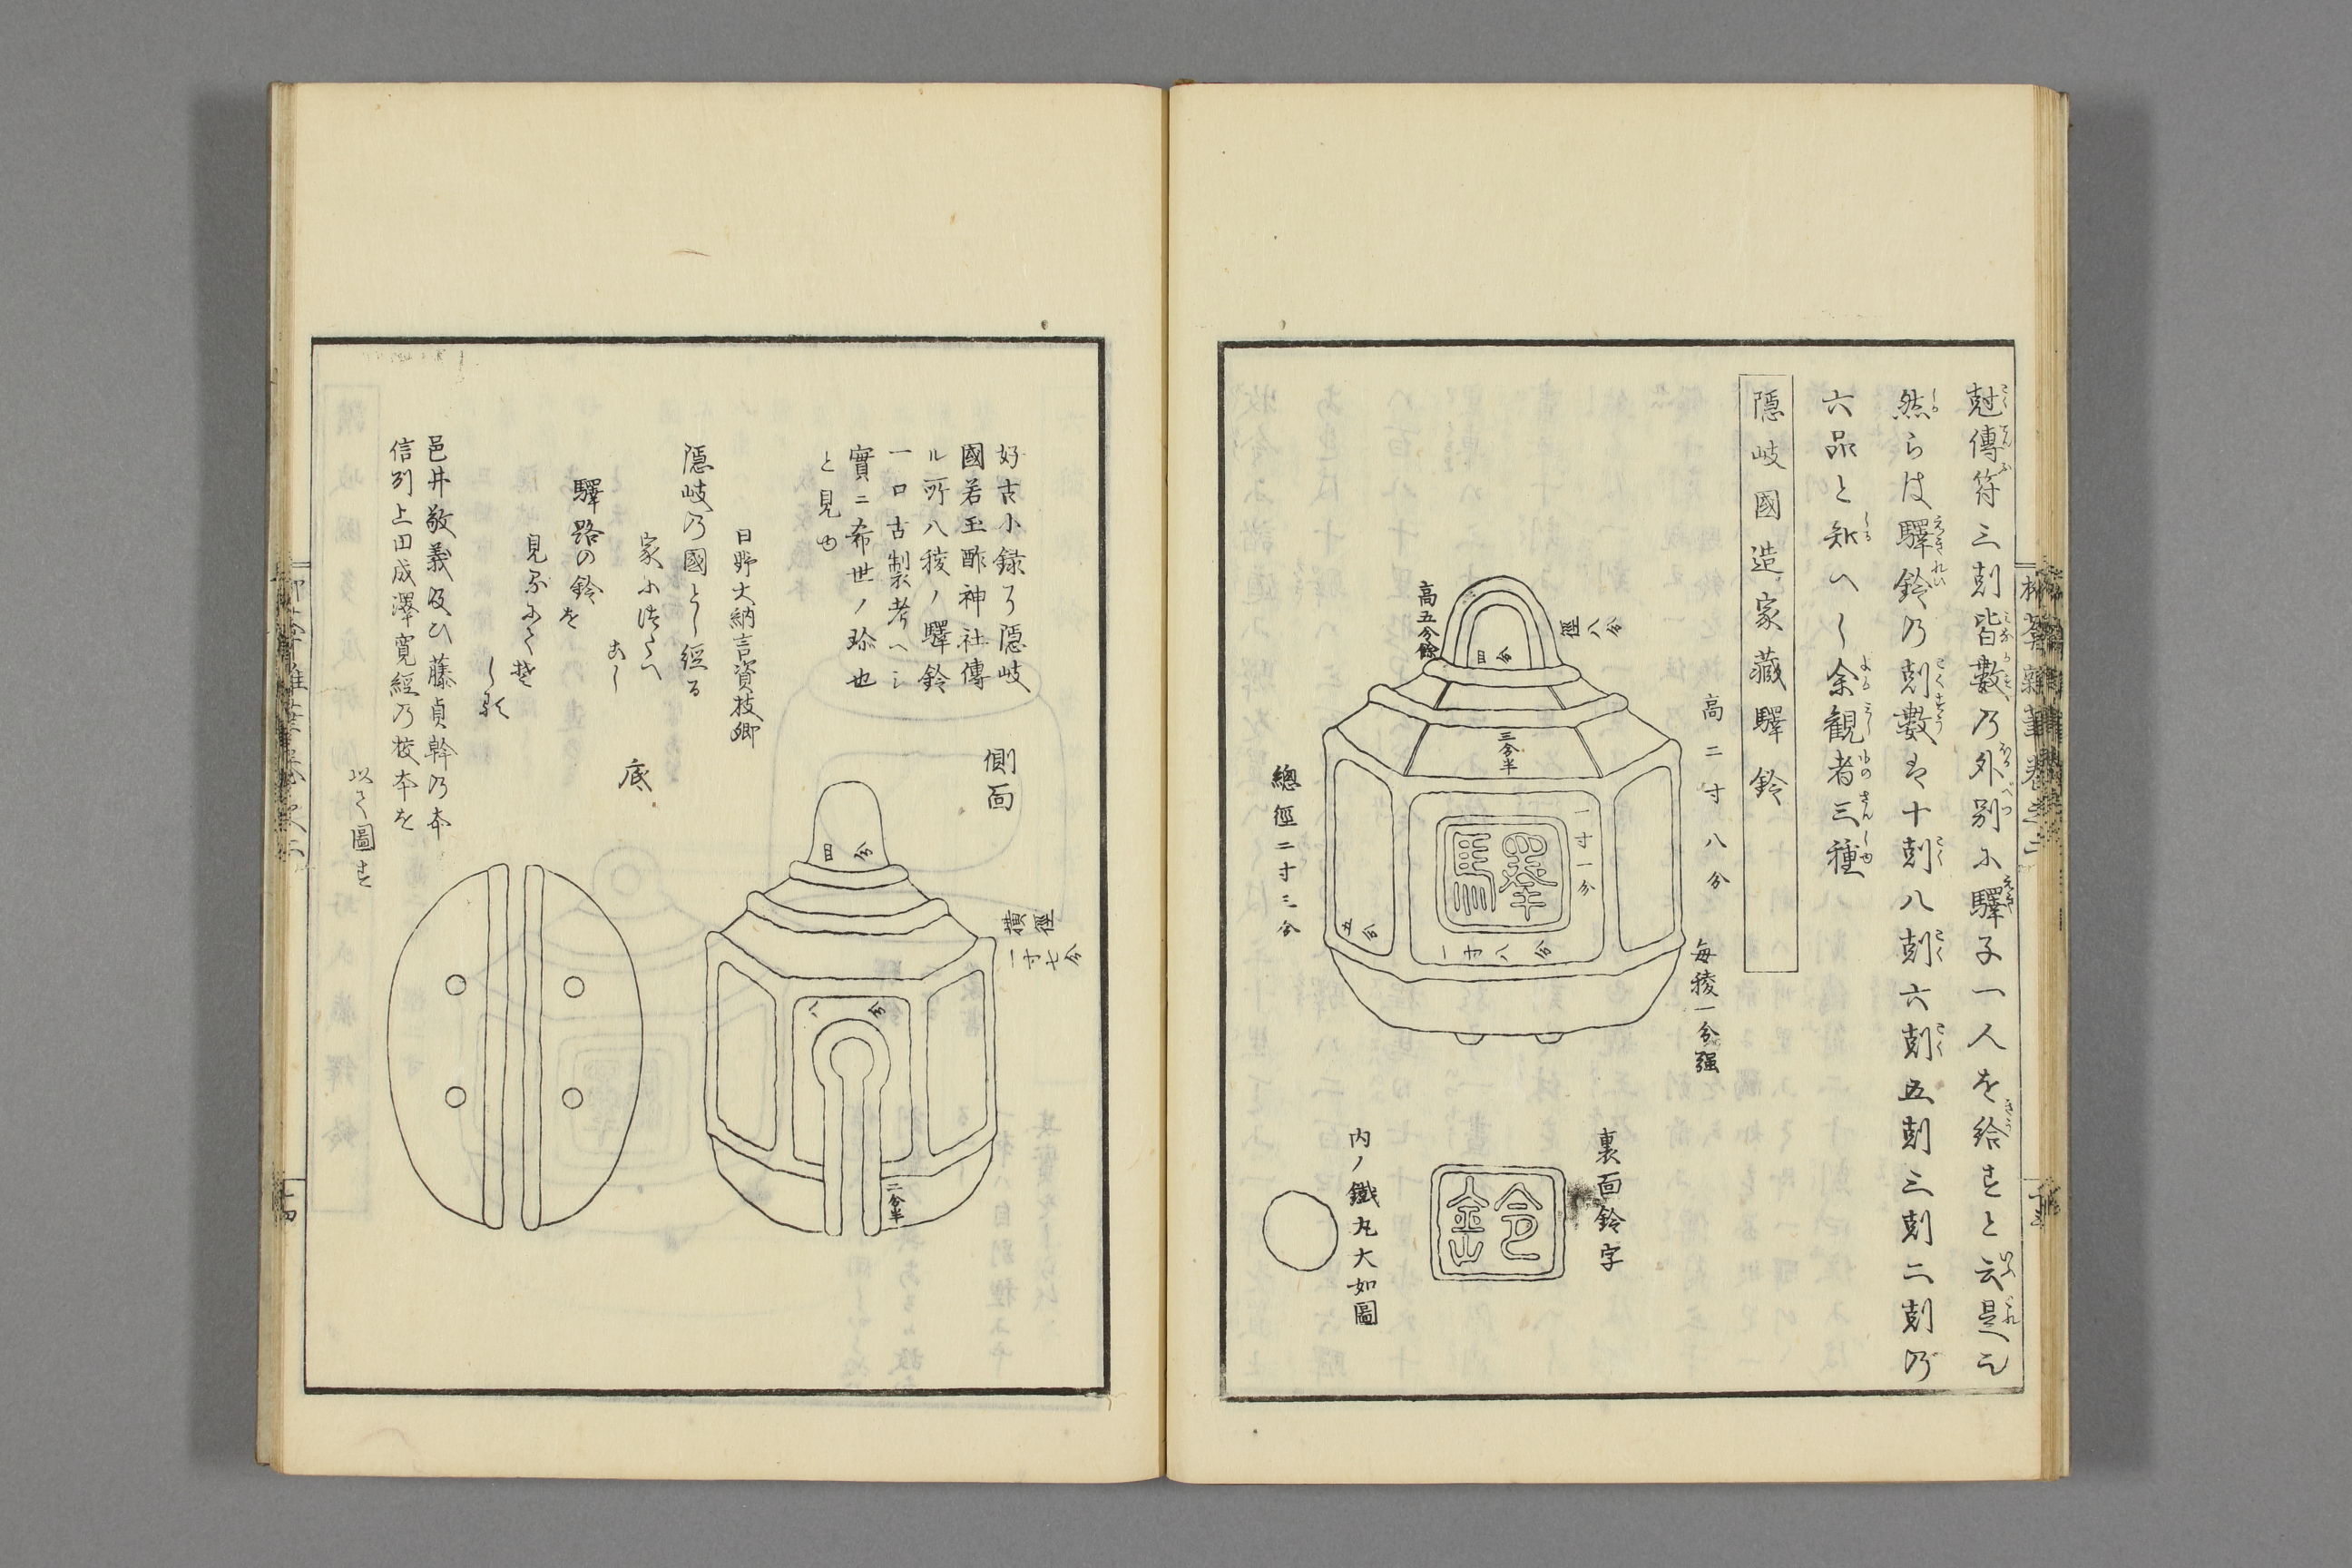 剋傳符三剋皆數乃外別に驛子一人を給すと云是を
然らは驛鈴乃剋數は十剋八剋六剋五剋三剋二剋乃
六品と知へし余観者三種
隱岐國造家藏驛鈴
高二寸八分
徑八分
高五分餘
目分
三分半
一寸一分
驛
一寸八分
五分
每稜一分强
總徑二寸三分
裏面鈴字
鈴
内ノ鐵丸大如圖
好古小録ニ隱岐
國若玉酢神社傳
ル所八稜ノ驛鈴
一口古制考ヘシ
實ニ希世ノ珍也
と見ゆ
側面
橫徑
一寸七分
目分
八分
二分半
日野大納言資枝卿
隱岐乃國とし經る
家に傳へ
こし
驛路の鈴を
見るにそ
しる
底
邑井敬義及ひ藤貞幹乃本
信州上田成澤寛經乃校本を
以て圖す